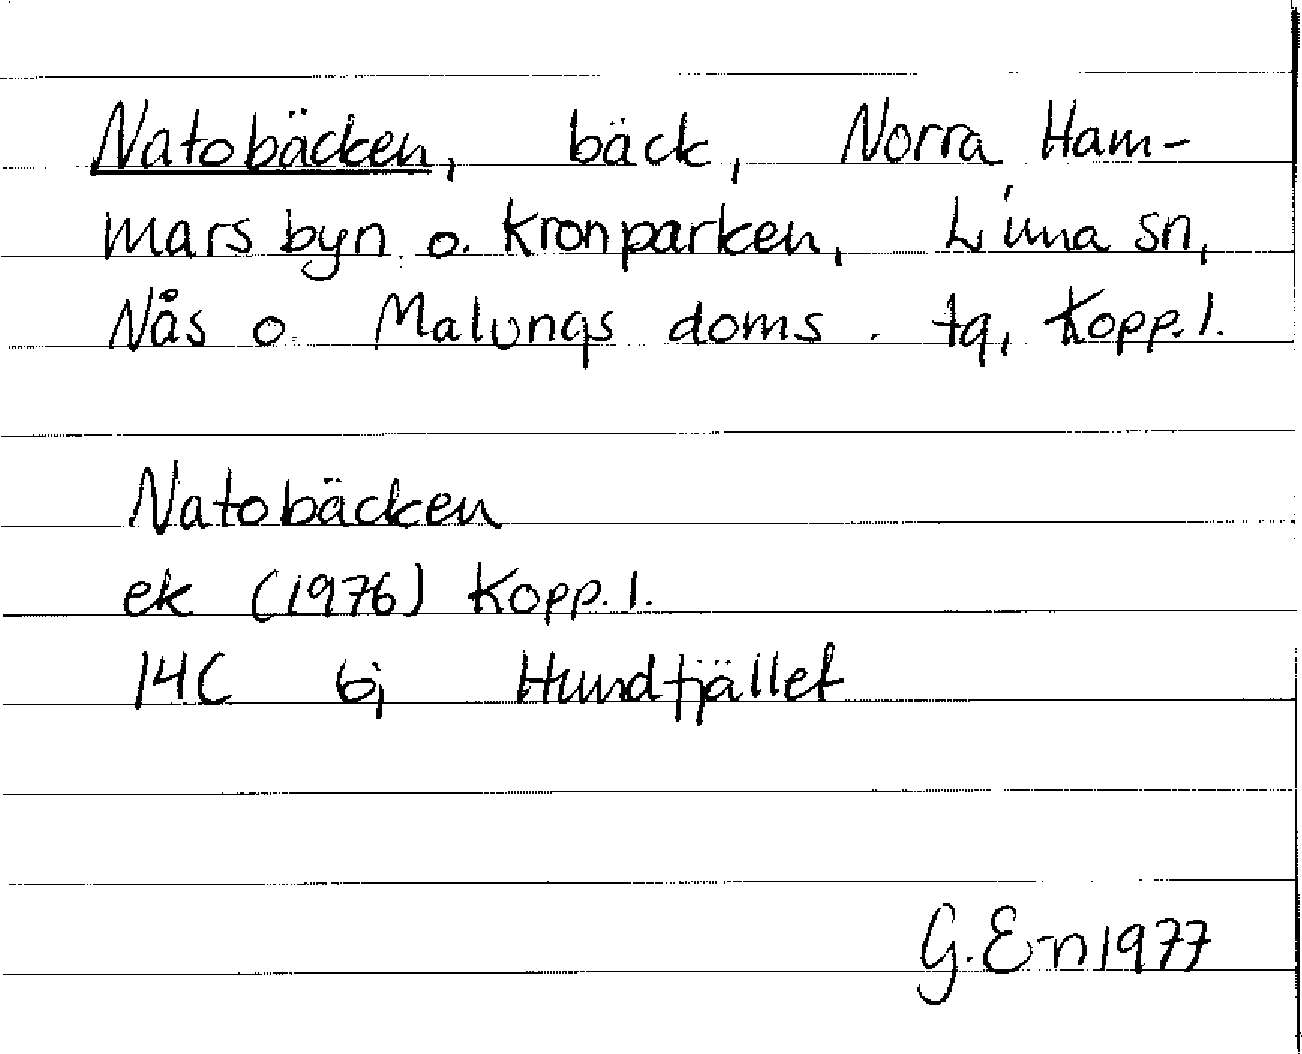 Natobäcken, bäck, Norra Ham-
marsbyn o. kronparken, Lima sn,
Nås o. Malungs doms. tg, Kopp. l.
Natobäcken
ek (1976) Kopp. l.
14C 6j Hundfjället
G. E-n 1977